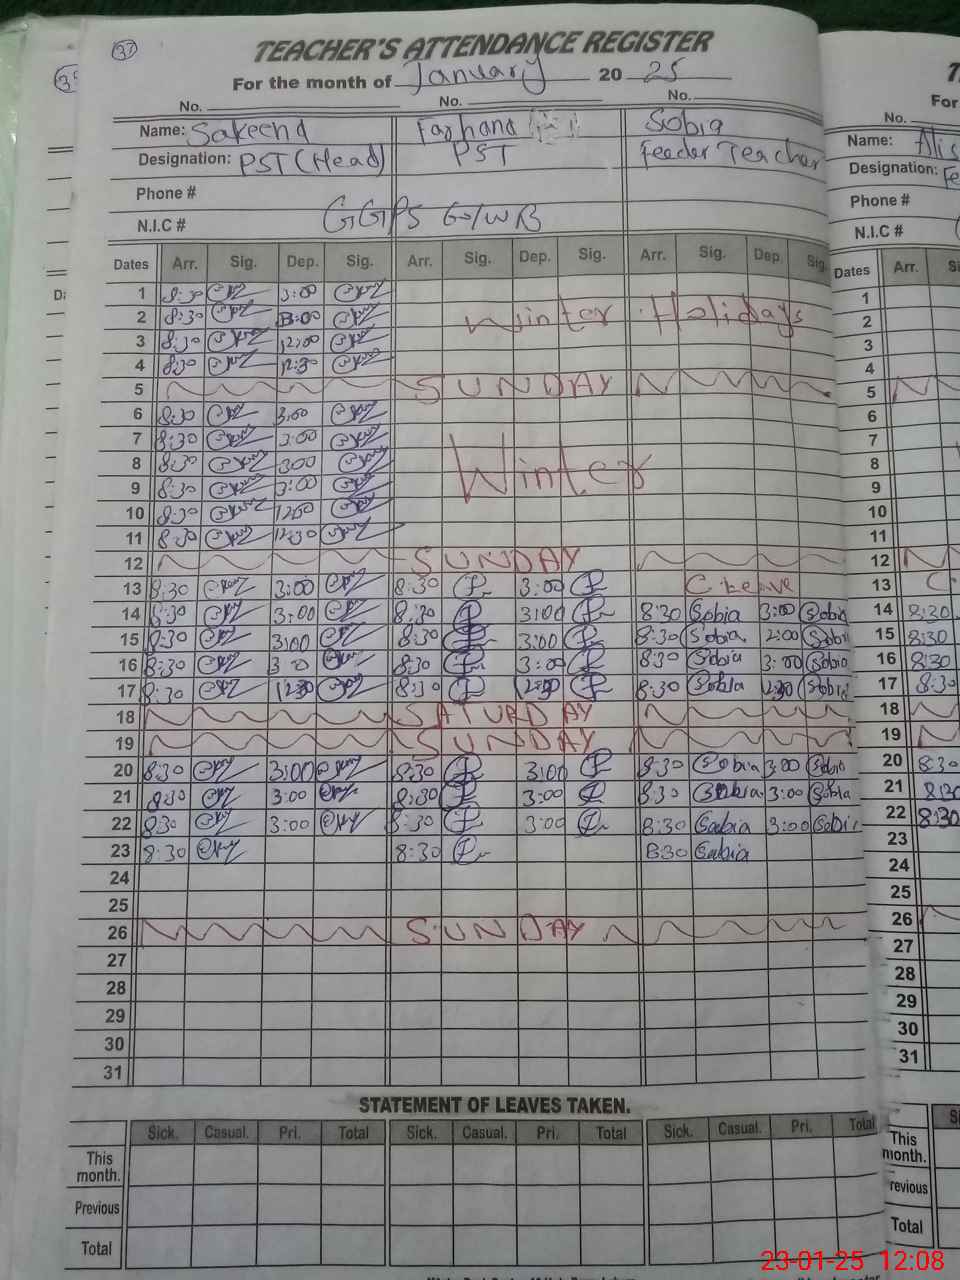 37
TEACHER'S ATTENDANCE REGISTER
For the month of January 20 25
No. No. No.
Name: Sakeena Farhana Sobia
Designation: PST (Head) PST Feeder Teacher
Phone #
N.I.C # GGPS
Dates Arr. Sig. Dep. Sig. Arr. Sig. Dep. Sig. Arr. Sig. Dep. Sig.
1 8:30 3:00
2 8:30 3:00 Winter Holidays
3 8:30 12:00
4 8:30 12:30
5 SUNDAY
6 8:30 3:00
7 8:30 3:00
8 8:30 3:00
9 8:30 3:00 Winter
10 8:30 12:00
11 8:30 12:30
12 SUNDAY
13 8:30 3:00 8:30 3:00 C. Leave
14 8:30 3:00 8:30 3:00 8:30 Sobia 3:00 Sobia
15 8:30 3:00 8:30 3:00 8:30 Sobia 2:00 Sobia
16 8:30 3 0 8:30 3:00 8:30 Sobia 3:00 Sobia
17 8:30 12:30 8:30 12:30 8:30 Sobia 12:30 Sobia
18 SATURDAY
19 SUNDAY
20 8:30 3:00 8:30 3:00 8:30 Sobia 3:00 Sobia
21 8:30 3:00 8:30 3:00 8:30 Sobia 3:00 Sobia
22 8:30 3:00 8:30 3:00 8:30 Sobia 3:00 Sobia
23 8:30 8:30 8:30 Sobia
24
25
26 SUNDAY
27
28
29
30
31
STATEMENT OF LEAVES TAKEN.
Sick. Casual. Pri. Total Sick. Casual. Pri. Total Sick. Casual. Pri. Total
This month.
Previous
Total
For
No.
Name:
Designation:
Phone #
N.I.C #
Dates Arr.
1
2
3
4
5
6
7
8
9
10
11
12
13 C
14 8:30
15 8:30
16 8:30
17 8:30
18
19
20 8:30
21 8:30
22 8:30
23
24
25
26
27
28
29
30
31
This month.
Total
23-01-25 12:08